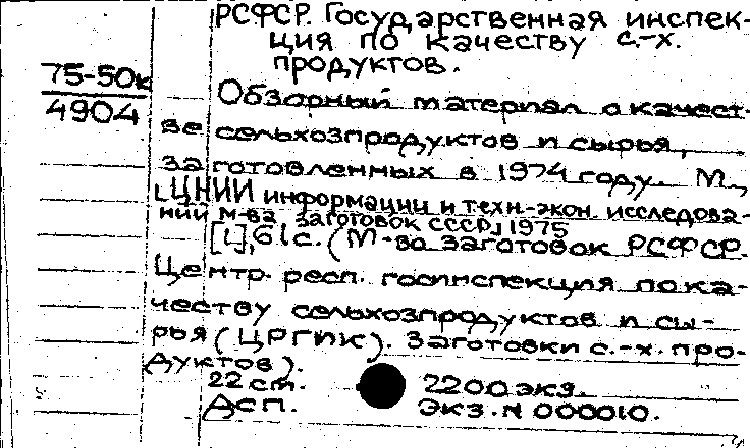 РСФСР. Государственная инспек-
ция по качеству с.-х.
продуктов.
75-50к
4904
Обзорный материал о качест-
ве сельхозпродуктов и сырья,
заготовленных в 1974 году. М.,
[ЦНИИ информации и техн.-экон. исследова-
ний м-ва заготовок СССР] 1975
[1], 61 с. (М-во заготовок РСФСР.
Центр. респ. госинспекция по ка-
честву сельхозпродуктов и сы-
рья (ЦРГИК). Заготовки с.-х. про-
дуктов).
22 см. 2200 экз.
ДСП. Экз. N 000010.